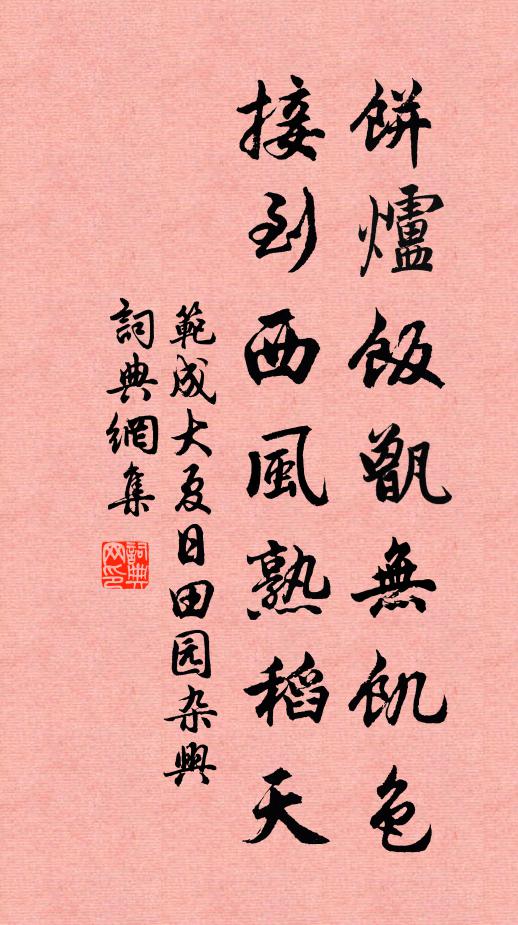 餅爐飯甑無飢色
接到西風熟稻天
範成大夏日田园杂興
詞典網集
詞典網印